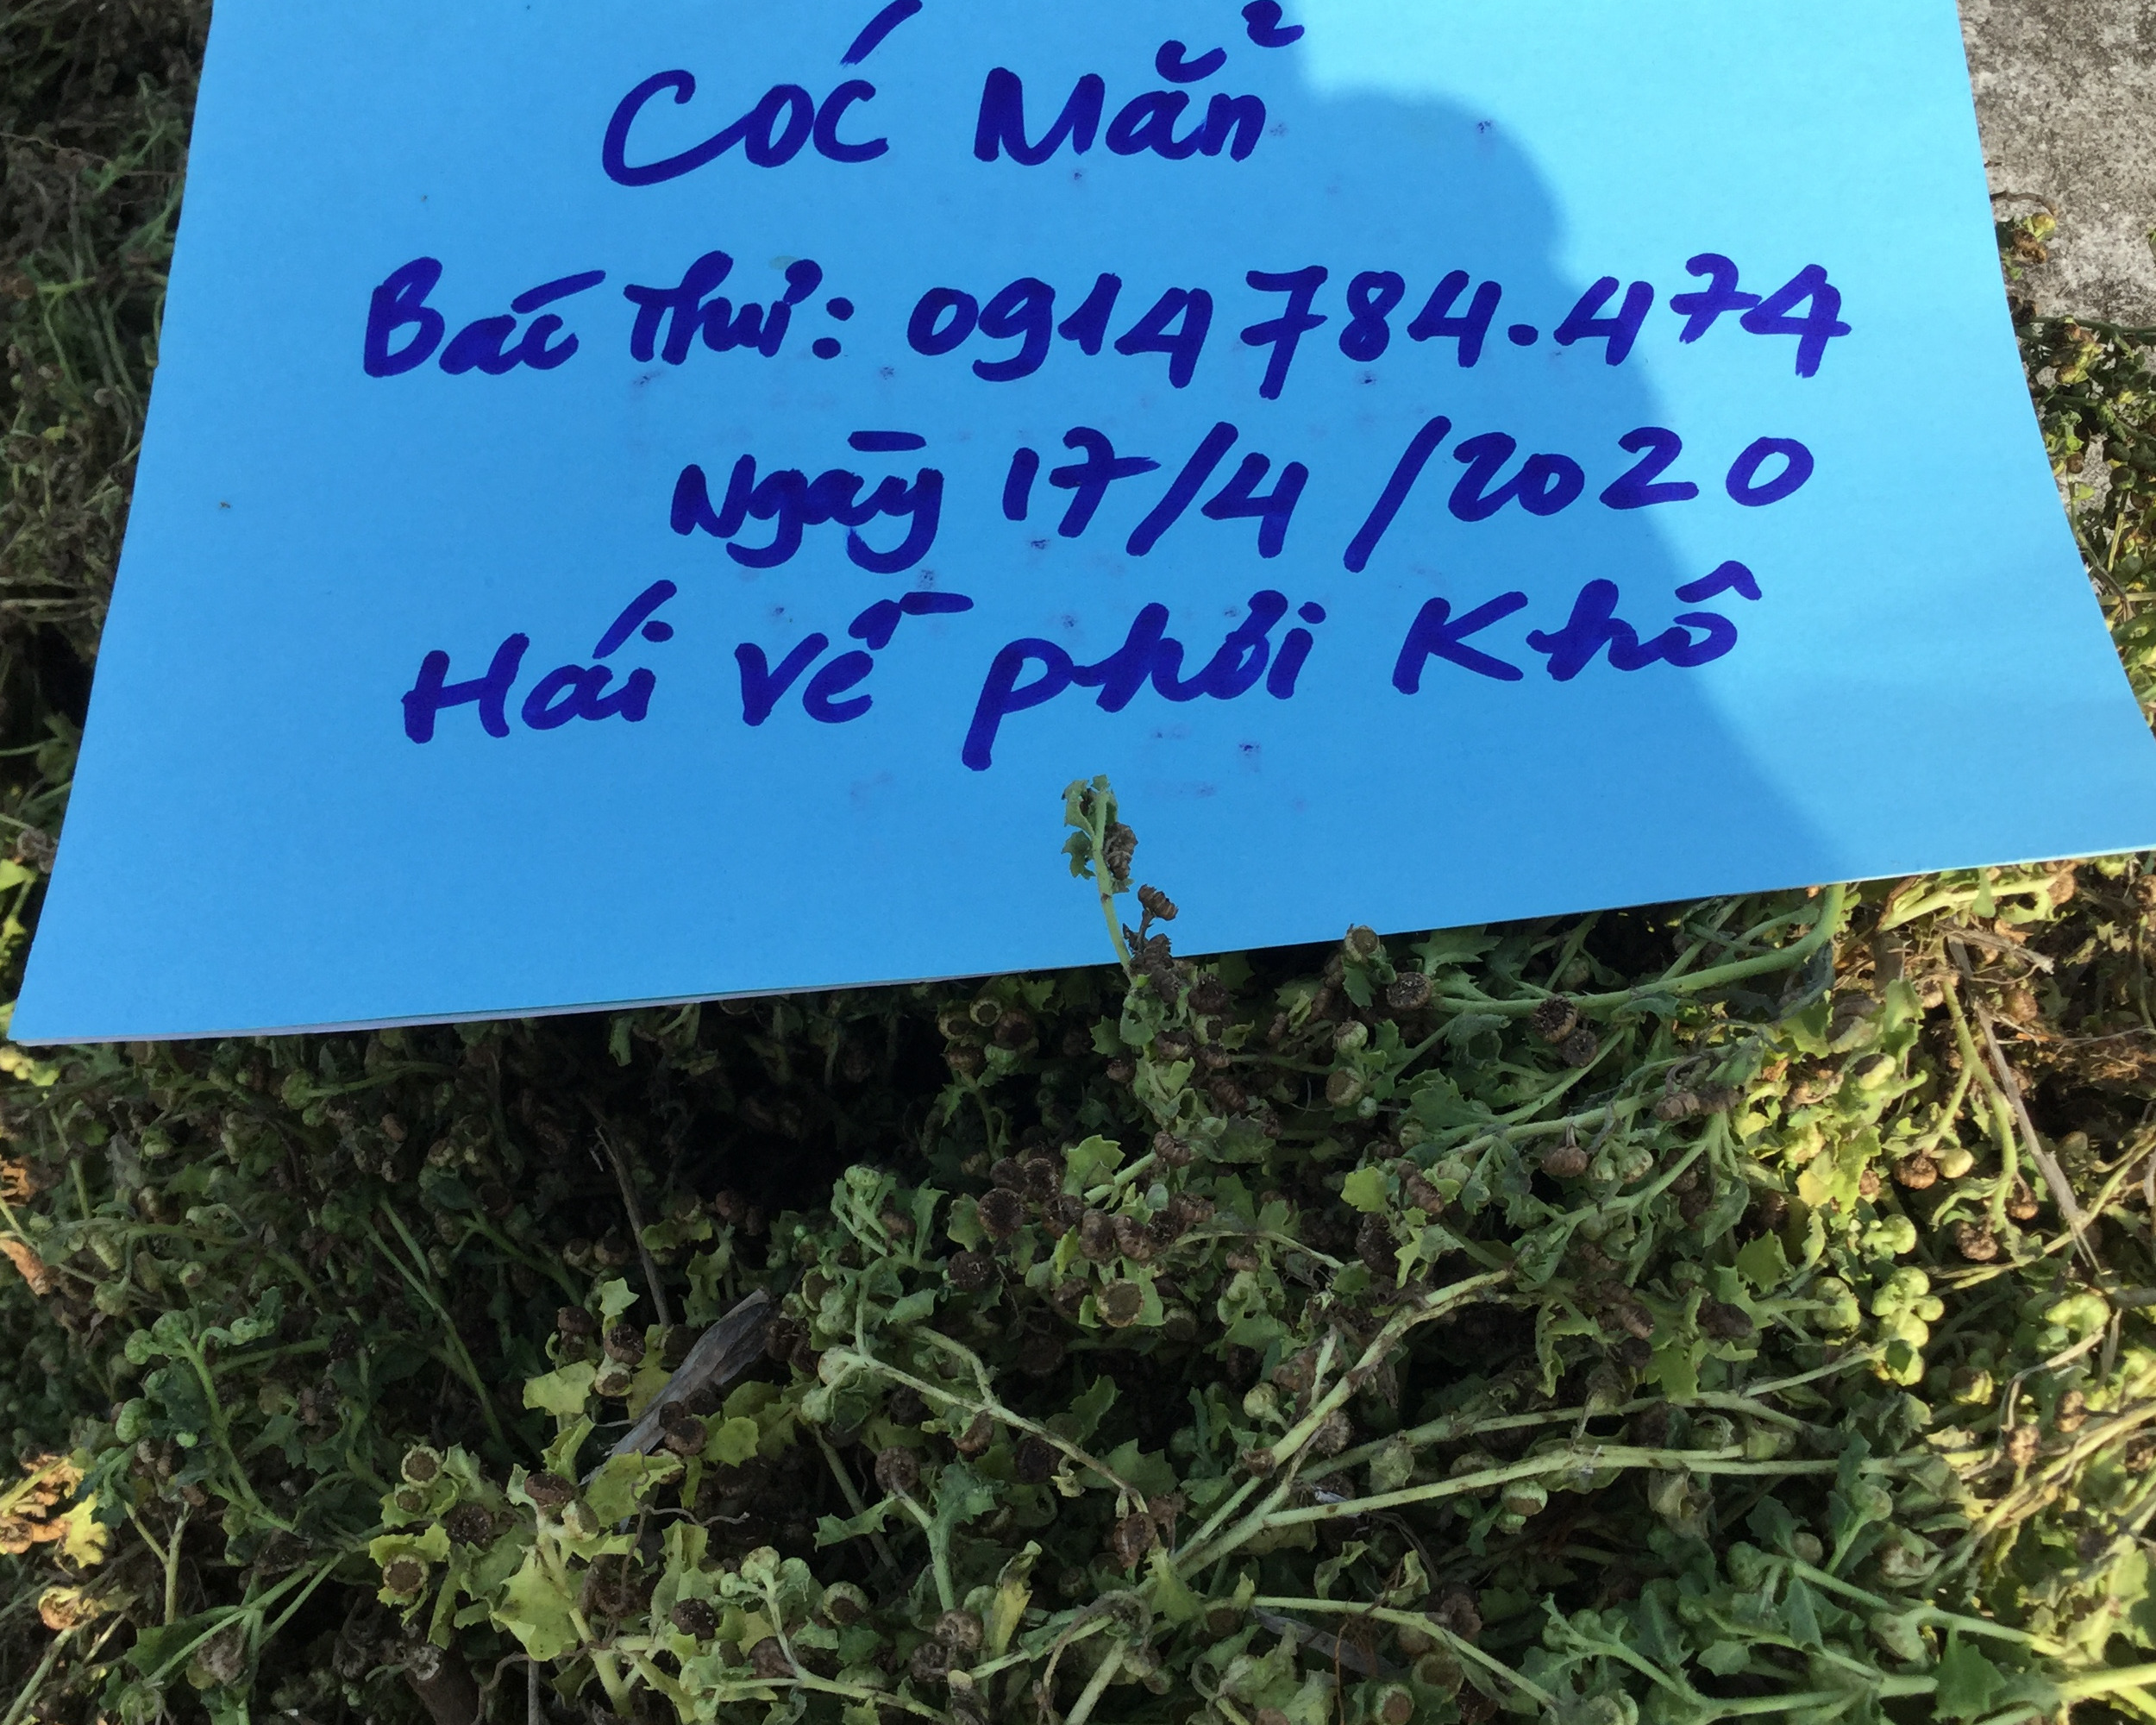 Cóc Mẳn
Bác Thư: 0914784.474
Ngày 17/4/2020
Hái về phơi Khô